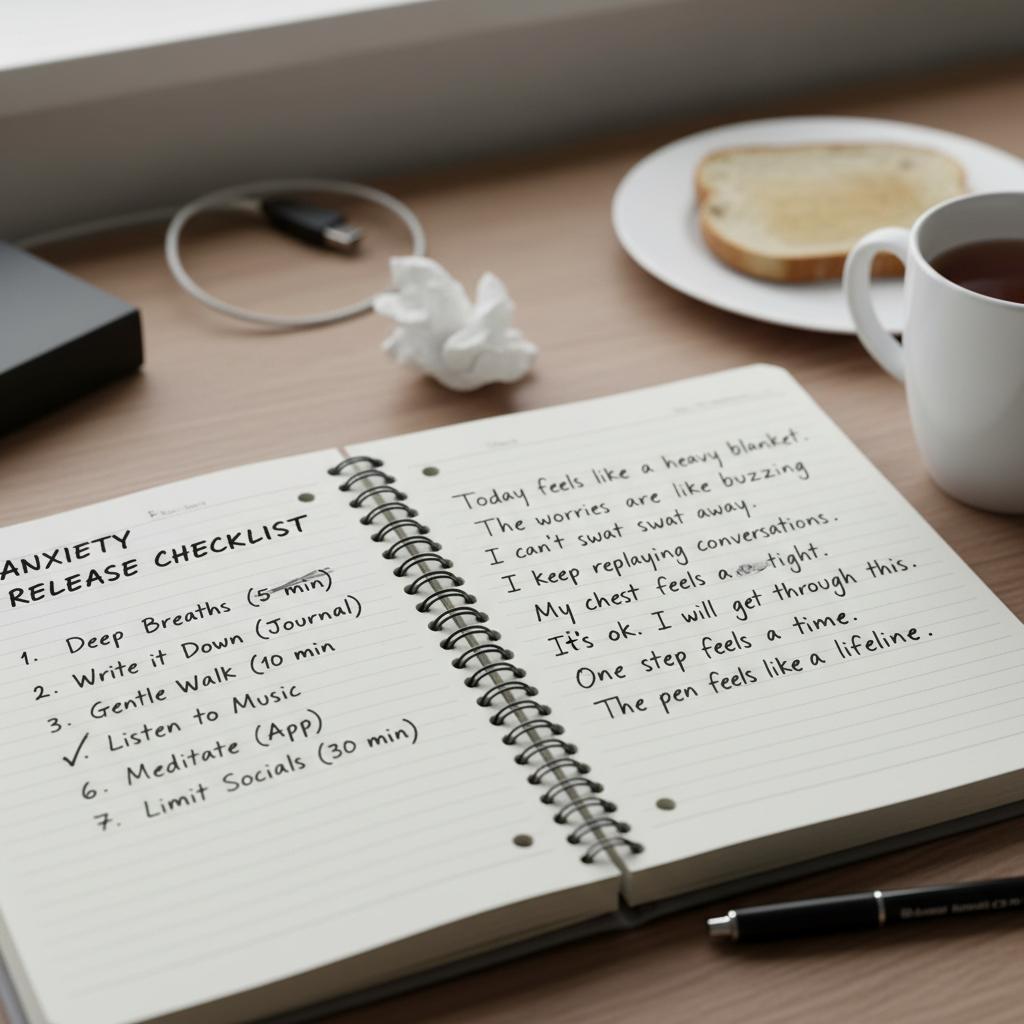 ANXIETY
RELEASE CHECKLIST
1. Deep Breaths (5 min)
2. Write it Down (Journal)
3. Gentle Walk (10 min
✓ Listen to Music
6. Meditate (App)
7. Limit Socials (30 min)
Today feels like a heavy blanket.
The worries are like buzzing
I can't swat swat away.
I keep replaying conversations.
My chest feels a tight.
It's ok. I will get through this.
One step feels a time.
The pen feels like a lifeline.